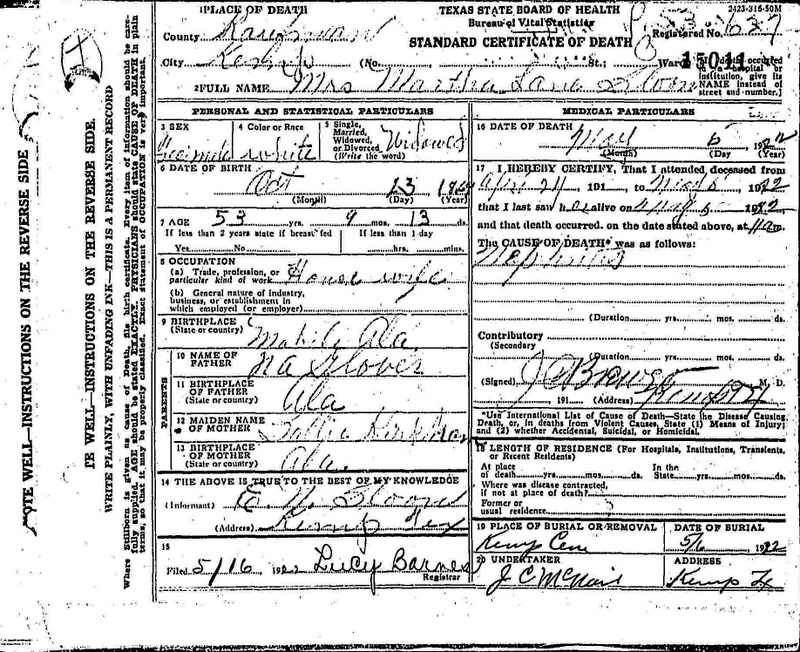 PLACE OF DEATH
TEXAS STATE BOARD OF HEALTH
2423-316-50M
Bureau of Vital Statistics
County Kaufman
STANDARD CERTIFICATE OF DEATH
Registered No.
City (No. St.; Ward)
15011
(If death occurred in a hospital or institution, give its NAME instead of street and number.)
2 FULL NAME Mrs Martha Jane Sloan
PERSONAL AND STATISTICAL PARTICULARS
3 SEX
Female
4 Color or Race
white
5 Single, Married, Widowed, or Divorced (Write the word)
Widowed
6 DATE OF BIRTH
Oct 23
(Month) (Day) (Year)
7 AGE 53 yrs. 9 mos. 13 ds.
If less than 2 years state if breast fed
Yes No
If less than 1 day
hrs. mins.
8 OCCUPATION
(a) Trade, profession, or particular kind of work House wife
(b) General nature of industry, business, or establishment in which employed (or employer)
9 BIRTHPLACE
(State or country) Mobile Ala
PARENTS
10 NAME OF FATHER Glover
11 BIRTHPLACE OF FATHER
(State or country) Ala
12 MAIDEN NAME OF MOTHER
13 BIRTHPLACE OF MOTHER
(State or country) Ala
14 THE ABOVE IS TRUE TO THE BEST OF MY KNOWLEDGE
(Informant)
(Address) Kemp Tex
15
Filed 5/16 192 Lucy Barnes
Registrar
MEDICAL PARTICULARS
16 DATE OF DEATH
May 5
(Month) (Day) (Year)
17 I HEREBY CERTIFY, That I attended deceased from
191 to 1922
that I last saw her alive on 1922
and that death occurred, on the date stated above, at
The CAUSE OF DEATH* was as follows:
Nephritis
(Duration yrs. mos. ds.
Contributory
(Secondary
(Duration yrs. mos. ds.
(Signed) M. D.
191 (Address)
*Use International List of Cause of Death—State the Disease Causing Death, or, in deaths from Violent Causes, State (1) Means of Injury; and (2) whether Accidental, Suicidal, or Homicidal.
18 LENGTH OF RESIDENCE (For Hospitals, Institutions, Transients, or Recent Residents)
At place of death yrs. mos. ds.
In the State yrs. mos. ds.
Where was disease contracted, if not at place of death?
Former or usual residence
19 PLACE OF BURIAL OR REMOVAL
Kemp Cem
DATE OF BURIAL
5/6 1922
20 UNDERTAKER
J C McNair
ADDRESS
Kemp Tx
NOTE WELL—INSTRUCTIONS ON THE REVERSE SIDE
TE WELL—INSTRUCTIONS ON THE REVERSE SIDE.
WRITE PLAINLY, WITH UNFADING INK—THIS IS A PERMANENT RECORD
Where Stillborn is given as cause of Death, file birth certificate. Every item of information should be carefully supplied. AGE should be stated EXACTLY. PHYSICIANS should state CAUSE OF DEATH in plain terms, so that it may be properly classified. Exact statement of OCCUPATION is very important.